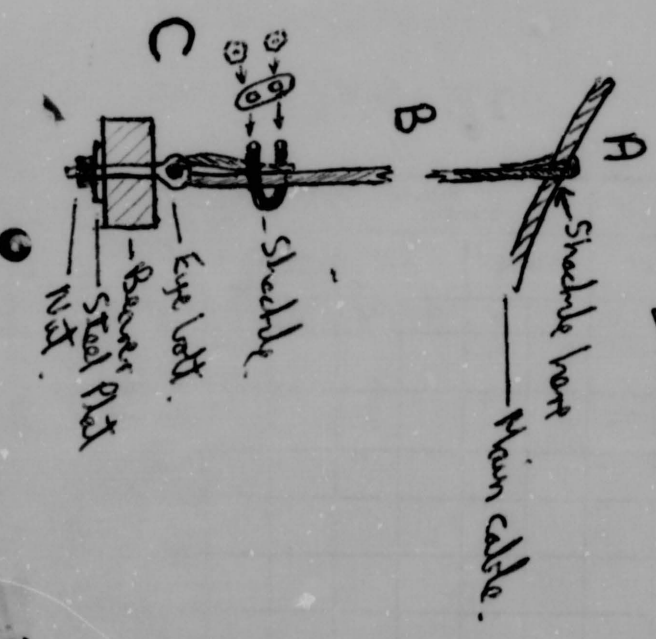 A
Shackle here
Main cable.
B
C
Shackle.
Eye bolt.
Beam
Steel Plat
Nut.